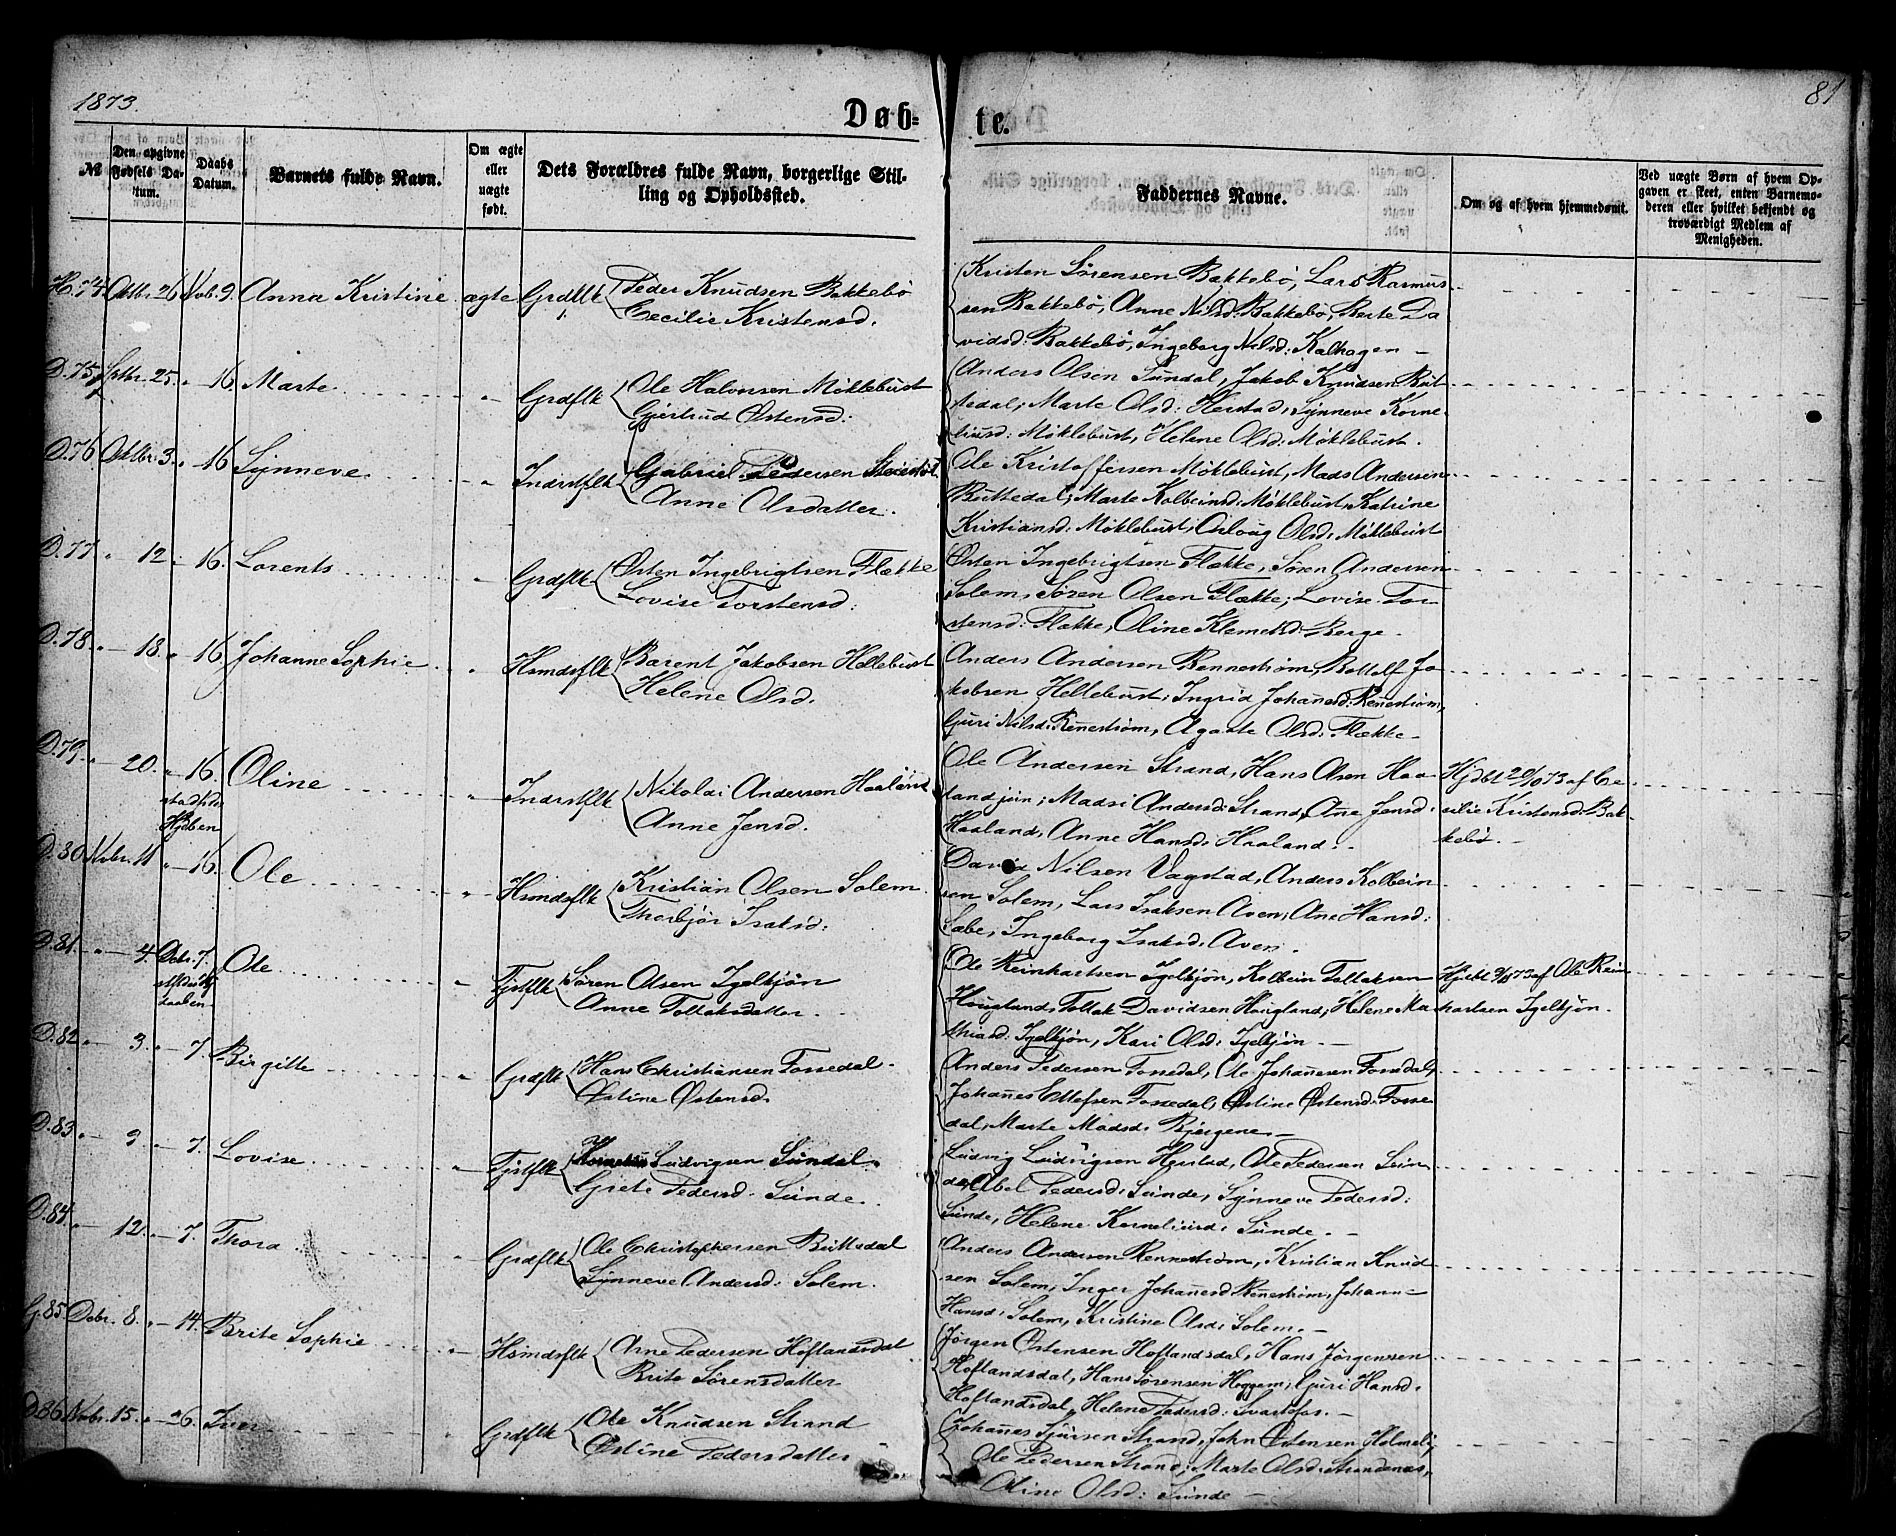 1873.
81
Døb=
te.
№
Den opgivne Fødsels Datum.
Daabs Datum.
Barnets fulde Navn.
Om ægte eller uægte født.
Dets Forældres fulde Navn, borgerlige Stilling og Opholdssted.
Faddernes Navne.
Om og af hvem hjemmedøbt.
Ved uægte Børn af hvem Opgaven er skeet, enten Barnemoderen eller hvilket bekjendt og troværdigt Medlem af Menigheden.
H. 74. Oktbr. 26 Nob. 9. Anna Kristine ægte Grdflk Peder Knudsen Bakkebø
Cecilie Kristensd.
Kristen Sørensen Bakkebø, Lars Rasmus-
sen Bakkebø, Anne Nilsd: Bakkebø, Berte Da
vidsd: Bakkebø, Ingeborg Nilsd: Kalhagen –
D. 75 Sptbr. 25. " 16 Marte " Grdflk Ole Halvorsen Møklebust
Gjertrud Østensd:
Anders Olsen Sundal, Jakob Knudsen But
tedal, Marte Olsd: Herstad, Synneve Korne
liusd: Møklebust, Helene Olsd: Møklebust.
D. 76 Oktbr. 3. " 16 Synneve " Indrstflk Gabriel Pedersen
Anne Olsdatter.
Ole Kristoffersen Møklebust, Mads Andersen
Buttedal, Marte Kolbeinsd: Møklebust, Katrine
Kristiansd: Møklebust, Oslaug Olsd: Møklebust
D. 77 " 12 " 16. Lorents " Grdflk Østen Ingebrigtsen Flække
Lovise Torstensd:
Østen Ingebrigtsen Flække, Søren Andersen
Solem, Søren Olsen Flække, Lovise Tor
stensd: Flække, Oline Klemetsd: Berge.
D. 78. " 18. " 16 Johanne Sophie " Hsmdsflk Barent Jakobsen Hellebust
Helene Olsd.
Anders Andersen Rennestrøm, Bottolf Ja
kobsen Hellebust, Ingrid Johansd: Rennestrøm,
Guri Nilsd: Rennestrøm, Agaate Olsd: Flække –
D. 79 " 20. " 16. Oline " Indrstflk Nikolai Andersen Haaland
stadfæ
Hjdben
Anne Jensd.
Ole Andersen Strand, Hans Olsen Haa
landjein, Madsi Andersd: Strand, Ane Jensd:
Haaland, Anne Hansd: Haaland.
Hjdbt 20/10 73 af Ce
cilie Kristensd: Bak-
kebø. –
D. 80 Nobr. 11 " 16. Ole " Hsmdsflk Kristian Olsen Solem
Thorbjør Isaksd:
David Nilsen Vagstad, Anders Kolbein
sen Solem, Lars Isaksen Aven, Ane Hansd:
Sæbe, Ingeborg Isaksd: Aven.
D. 81. " 4. Debr. 7. Ole " Tjstflk Søren Olsen Igelkjøn
Daaben
Anne Foltaksdatter.
Ole Reinhartsen Igelkjøn, Kolbein Foltaksen
Hougland, Foltak Davidsen Hougland, Helene Ma
thiasd: Igelkjøn, Kari Olsd: Igelkjøn. –
Hjdbt 9/11 73 af Ole Rein
hartsen Igelkjøn.
D. 82 " 3. " 7 Birgitte " Grdflk Hans Christiansen Fossedal.
Østine Østensd.
Anders Pedersen Fossedal, Ole Johannesen Fossdal,
Johannes Ellefsen Fossedal, Østine Østensd: Fosse
dal, Marte Madsd: Bjørgene. –
D. 83 " 9. " 7. Lovise " Tjstflk Ludvigsen Sundal
Grete Pedersd. Sunde.
Ludvig Ludvigsen Herstad, Ole Pedersen Sun
dal, Abel Pedersd: Sunde, Synneve Pedersd:
Sunde, Helene Korneliusd: Sunde. –
D. 84. " 12. " 7. Thora " Grdflk Ole Christophersen Buttedal
Synneve Andersd: Solem.
Anders Andersen Rennestrøm, Kristian Knud
sen Solem, Inger Johannesd Rennestrøm, Johanne
Hansd: Solem, Kristine Olsd: Solem. –
G. 85 Debr. 8. " 14. Brite Sophie " Hsmdsflk Arne Pedersen Høflandsdal
Brite Sørensdatter
Jørgen Østensen Høflandsdal, Hans Jørgensen
Høflandsdal, Hans Sørensen Heggem, Guri Hansd:
Høflandsdal, Helene Pedersd: Svartefos. –
D. 86 Nobr. 15. " 26. Iver Grdflk Ole Knudsen Strand
Østine Pedersdatter
Johannes Sjursen Strand, John Østensen Holmeli,
Ole Pedersen Strand, Marte Olsd: Strandenæs,
Oline Olsd: Sunde –